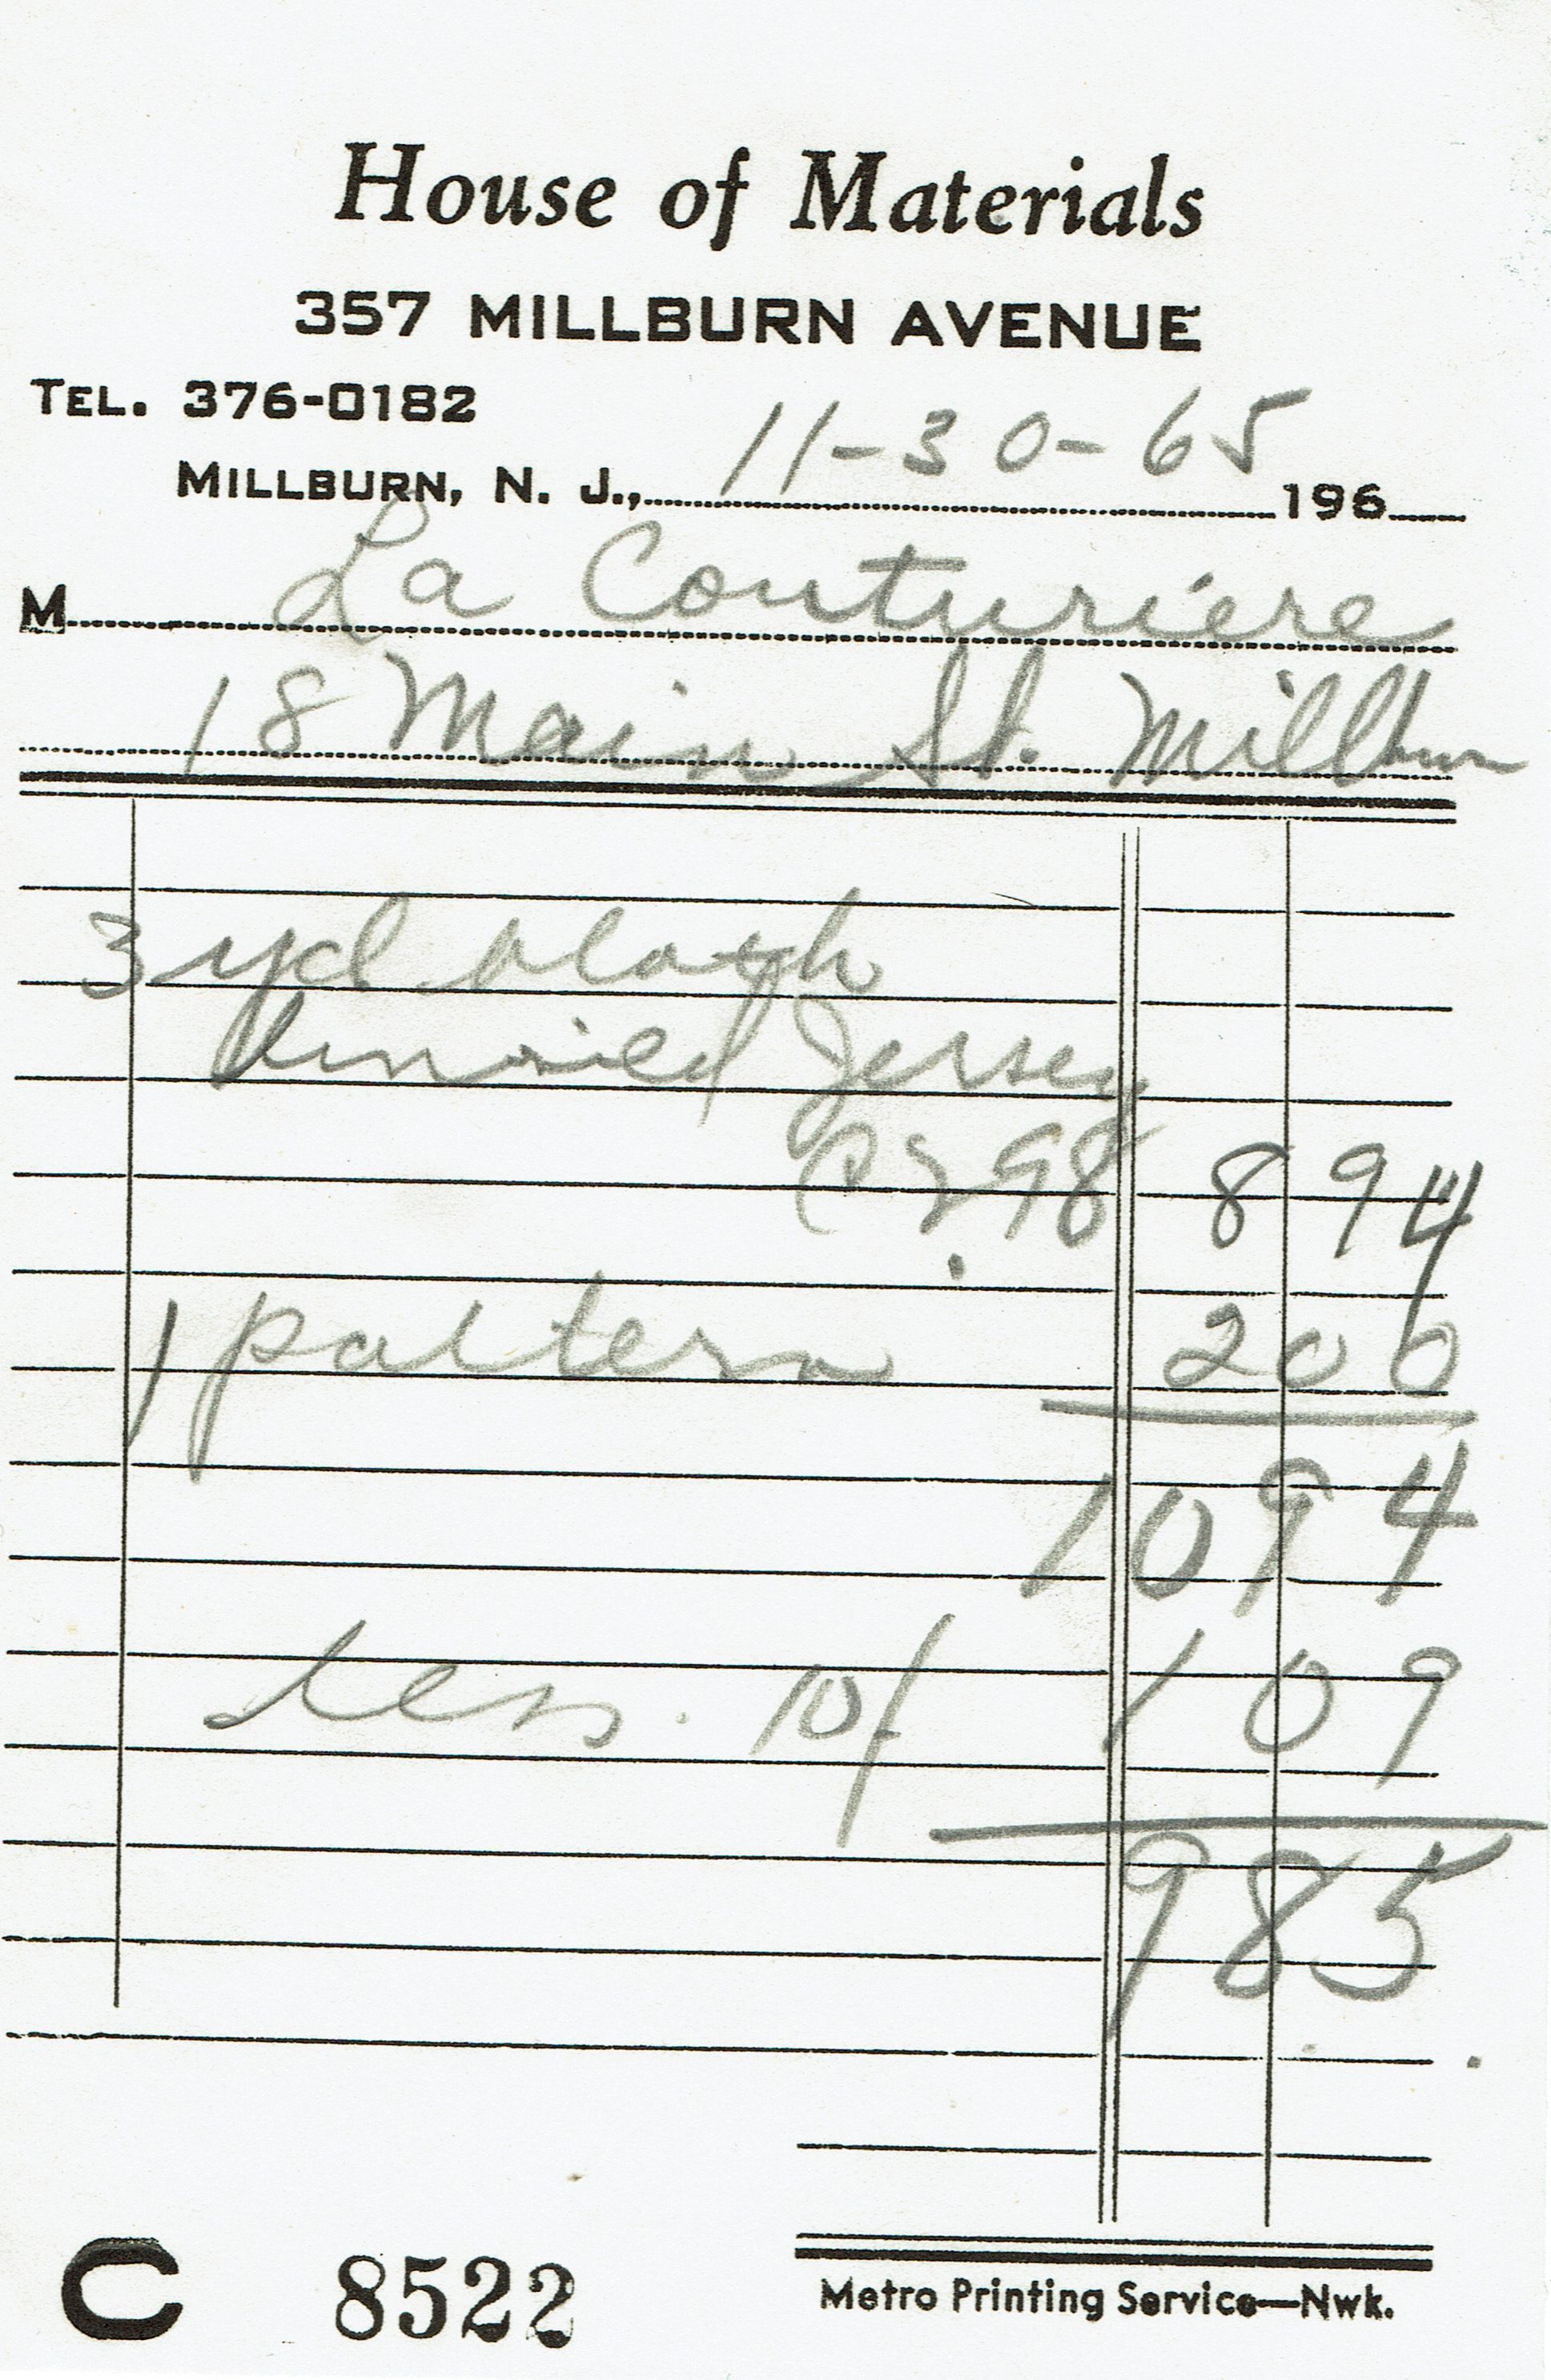 House of Materials
357 MILLBURN AVENUE
TEL. 376-0182
MILLBURN, N. J., 11-30-65 196
M La Couturiere
18 Main St. Millburn
3 yd black
Jersey
@ 2.98 8 94
1 pattern 2 00
10 94
less 10% 1 09
9 85
C 8522
Metro Printing Service—Nwk.